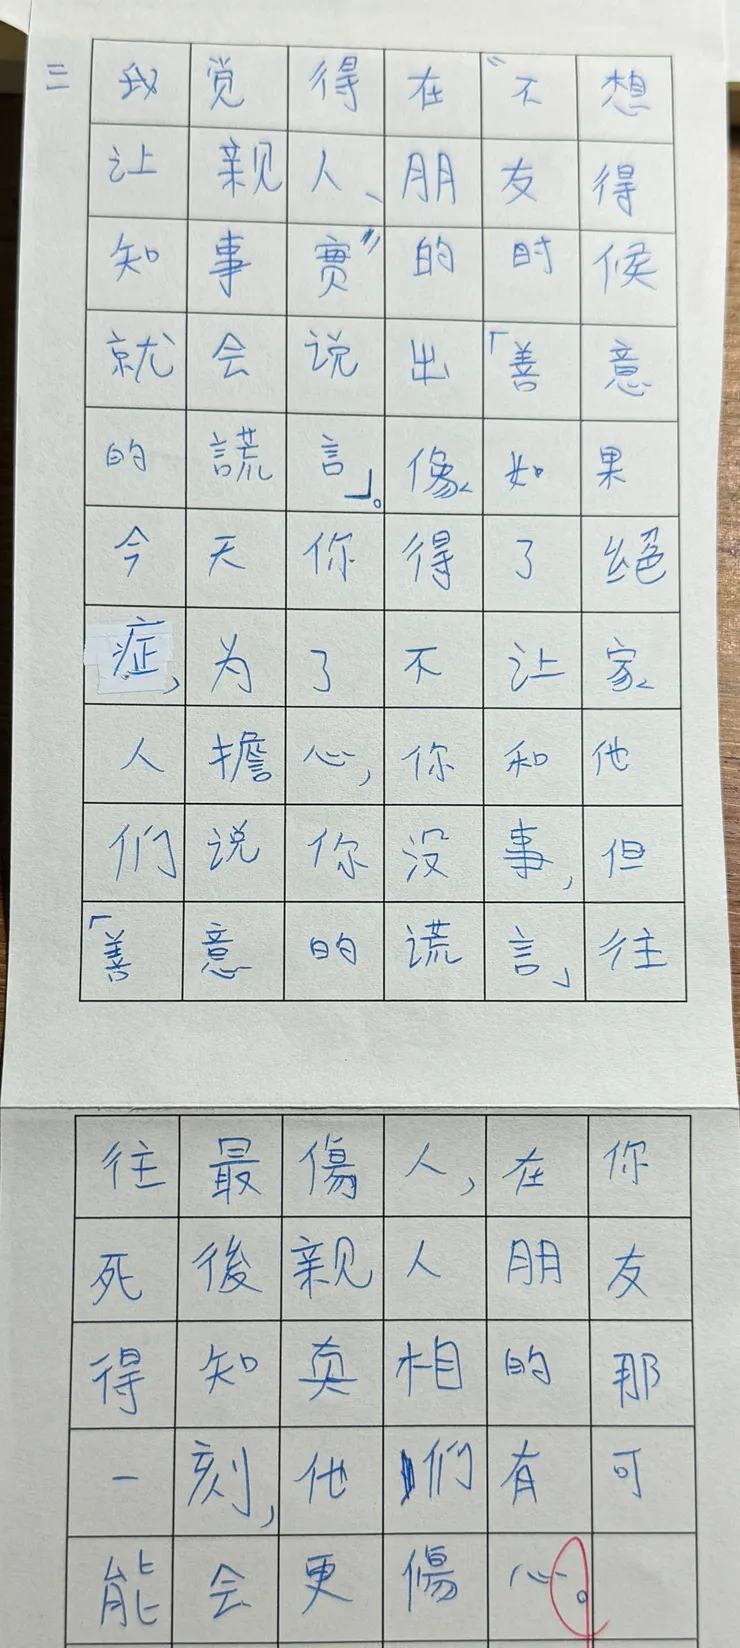 三 我觉得在“不想
让亲人、朋友得
知事實”的时候
就会说出「善意
的謊言」。像如果
今天你得了绝
症,为了不让家
人擔心,你和他
们说你没事,但
「善意的谎言」往
往最傷人,在你
死後亲人朋友
得知真相的那
一刻,他们有可
能会更傷心。